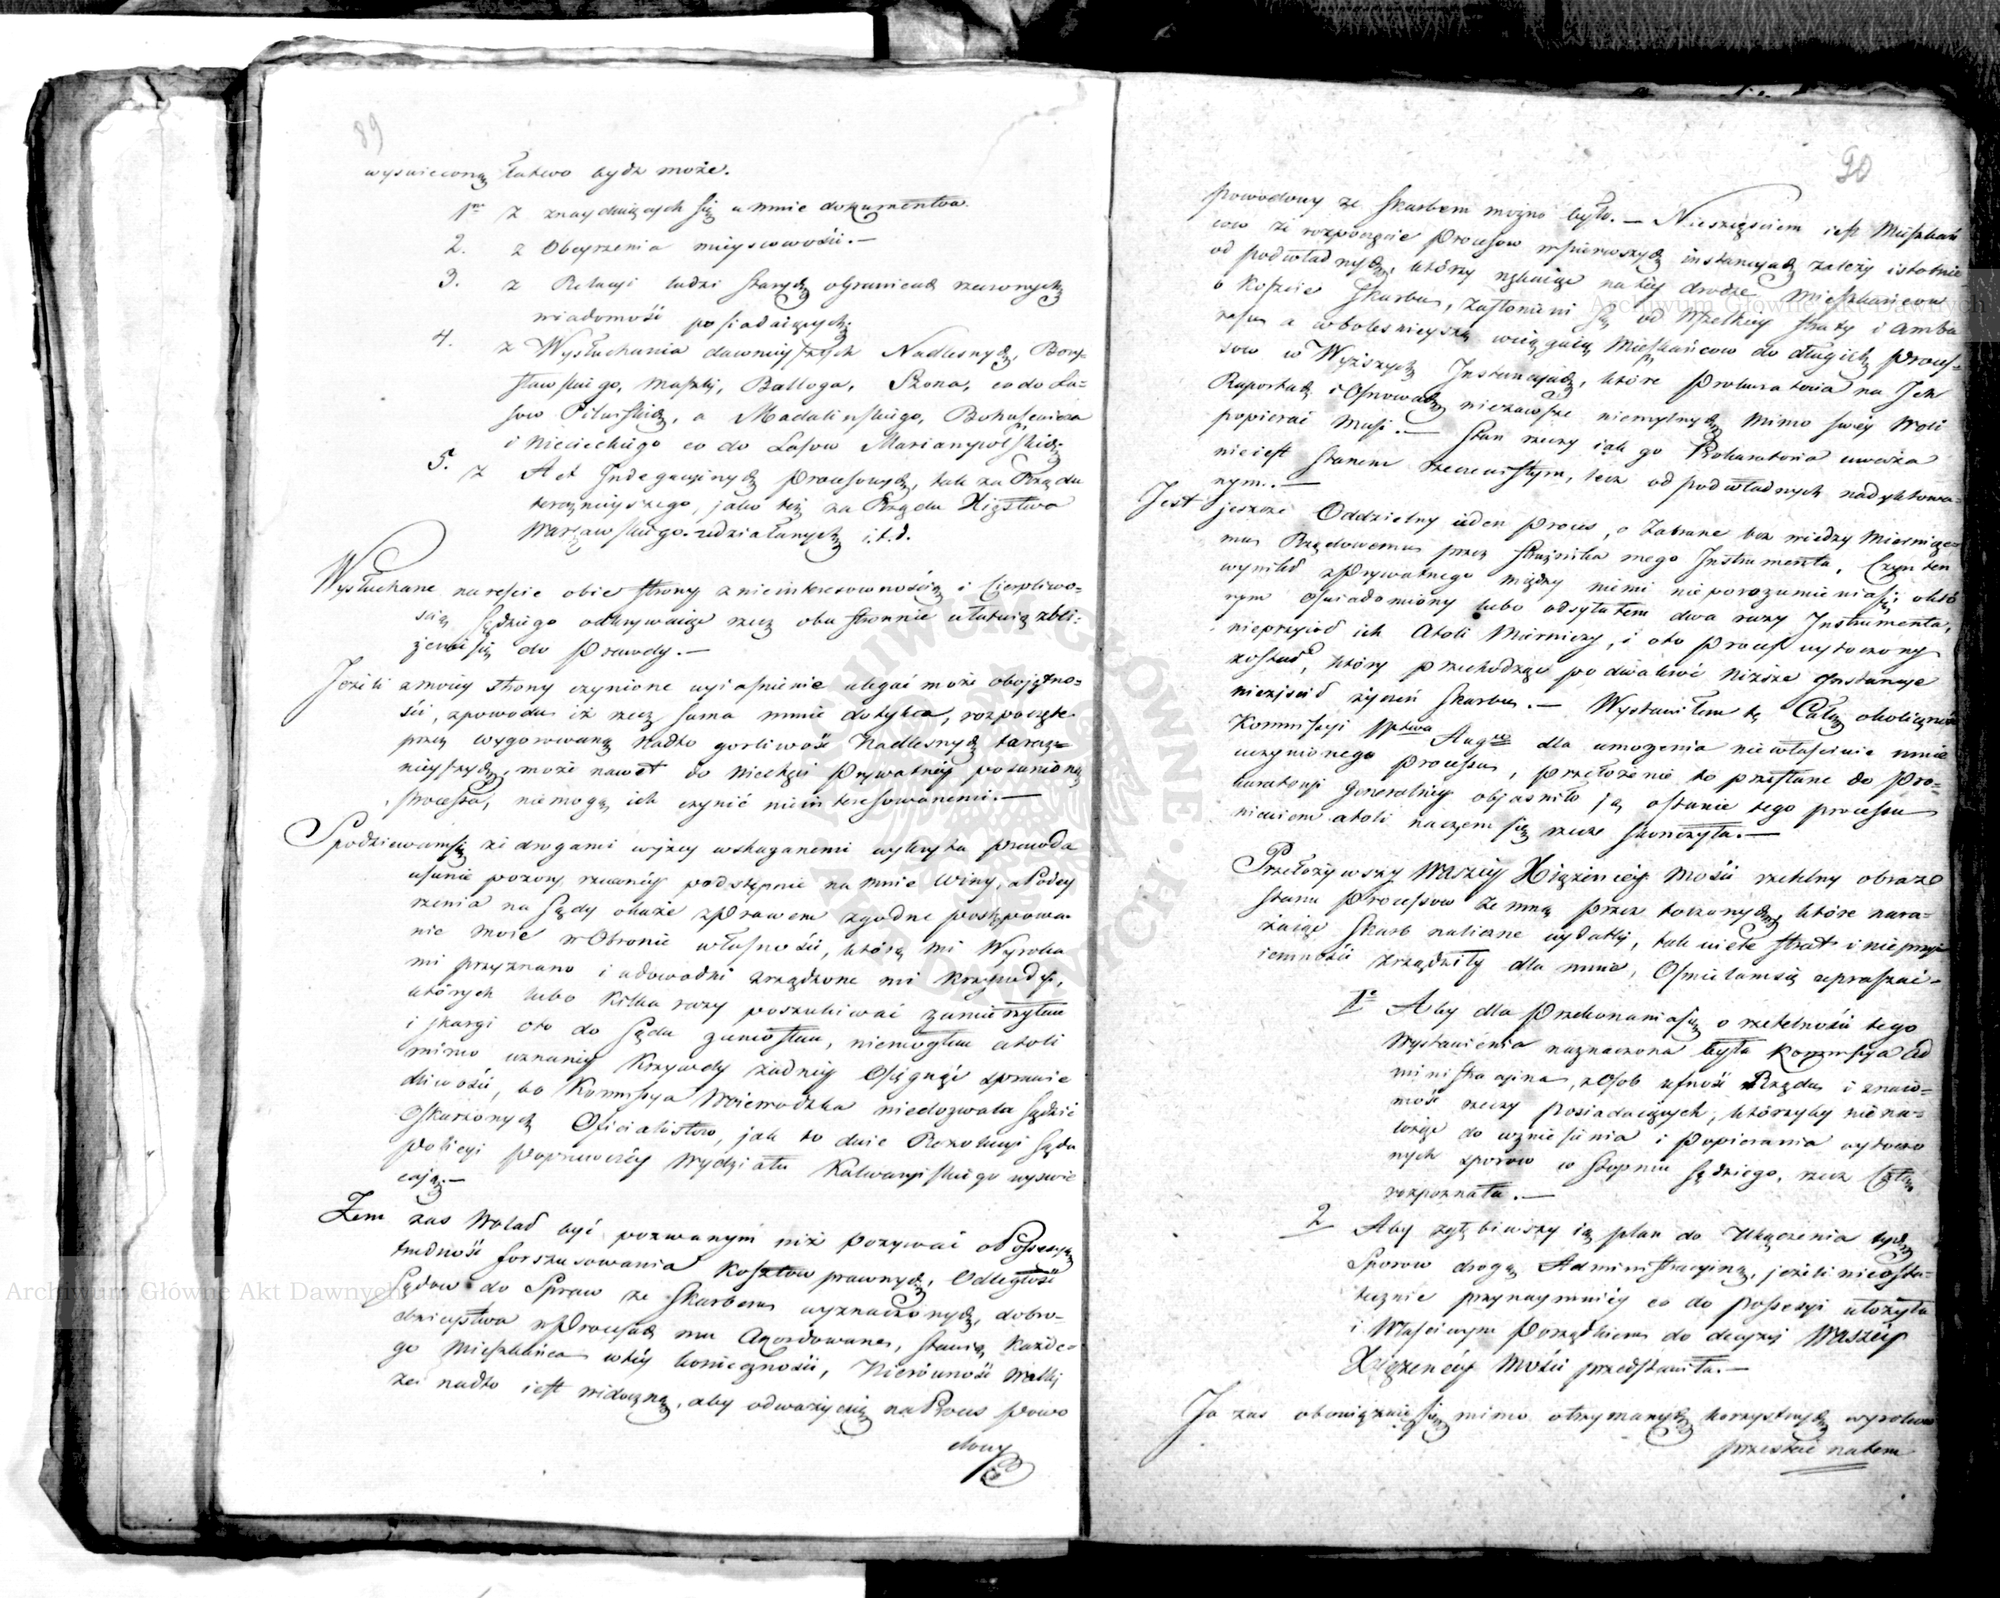 89
wyswieconą łatwo bydź może.
1mo z znayduiących się u mnie dokumentow.
2. z Obeyrzenia mieyscowości.—
3. z Relacyi ludzi starych o Granicach rzeczonych
wiadomość posiadaiących.
4. z Wysłuchania dawnieyszych Nadlesnych, Bory-
sławskiego, Balloga, co do La-
sow Pilwiskich, a Madalinskiego, Bohusiewicza
i Nieciechiego co do Lasow Maryampolskich.
5. z Akt Indegacyinych Processowych, tak za Rządu
teraznieyszego, jako też za Rządu Xięztwa
Warszawskiego zdziałanych i.t.d.
Wysłuchane nareście obie strony z nieinteresownością i Cierpliwo-
scią Sędziego odkrywaiąc rzecz oba stronnie ułatwią zbli-
żenie się do Prawdy.—
Jeżeli z moiey strony czynione wyiaśnienie ulegać może oboiętno-
ści, z powodu iż rzecz sama mnie dotyka, rozpoczęte
przez wygorowaną nadto gorliwość Nadlesnych teraz-
nieyszych, może nawet do niechęci Prywatney posunioną
Processa, nie mogą ich czynić nieinteresowanemi.—
Spodziewam się że drogami wyżey wskazanemi wykryta prawda
usunie pozory rzuconey podstępnie na mnie Winy, a Podey
rzenia na Sądy okaże z Prawem zgodne postępowa-
nie moie w Obronie własności, którą mi Wyroka
mi przyznano i udowodni zrządzone mi krzywdy,
których lubo kilka razy poszukiwać zamierzyłem
i skargi oto do Sądu zaniosłem, niemogłem atoli
mimo uznaney krzywdy żadney Osiągnąć sprawie
dliwości, bo Kommissya Woiewodzka niedozwala Sądzić
Oskarżonych Oficialistow, jak to dwie Rezolucyi Sądu
Policyi Poprawczey Wydziału Kalwaryiskiego wyswie
caią.—
Zem zas wolał być pozwanym niż pozywać o Possessyą
trudność forszusowania Kosztow prawnych, Odległość
Sądow do Spraw ze Skarbem wyznaczonych, dobro-
dzieystwa w Processach mu Akordowane, stawią każde-
go Mieszkańca w tey konieczności, Nierówność walki
za nadto iest widoczną, aby odważyć się na Proces powo
dowy

90
powodowy ze Skarbem można było.— Nieszczęściem iest Mieszkań
cow że rozpoczęcie Processow w pierwszych instancyach zależy istotnie
od podwładnych, którzy nękaiąc na tey drodze Mieszkańcow
o koszcie Skarbu, zasłonieni są od Wszelkiey straty i amba
rasu a w boleśnieyszą wciągaią Mieszkańcow do długich Proces-
sow w Wyższych Instancyach, które Prokuratorya na Ich
Raportach i Osnowach niezawsze niemylnych mimo swey Woli
popierać Musi.— Stan rzeczy iak go Prokuratoria uważa
nieiest stanem rzeczewistym, lecz od podwładnych nadyktowa-
nym.—
Jest jeszcze Oddzielny ieden Proces, o Zabrane bez wiedzy Miernicze-
mu Rządowemu przez Strażnika mego Instrumenta, Czyn ten
wynikł z Prywatnego między niemi nieporozumienia się, o któ
rym Oswiadomiony lubo odsyłałem dwa razy Instrumenta,
nieprzyiął ich Atoli Mierniczy, i oto Proces wytoczony
został, który przechodząc po dwakroć niższe Instancye
nieziścił życzeń Skarbu.— Wystawiłem tę Całą okoliczność
Kommissyi Wztwa Augo dla umorzenia niewłaściwie mnie
uczynionego Processu, przełożenie to przesłane do Pro-
kuratoryi Generalney objasniło ją o stanie tego procesu
niewiem atoli na czem się rzecz skończyła.—
Przełożywszy Waszey Xiążencey Mości rzetelny obraz
stanu Processow ze mną przez toczonych, które nara-
żaiąc Skarb na liczne wydatki, tak wiele strat i nieprzy
iemności zrządziły dla mnie, Ośmielam się upraszać.
1o Aby dla Przekonania się o rzetelności tego
Wystawienia naznaczona była kommissya Ad
ministracyina, z Osob ufność Rządu i znaio-
mość rzeczy posiadaiących, którzyby nie na-
leżąc do wzniesienia i Popierania wytoczo
nych sporow w stopniu Sędziego, rzecz Całą
rozpoznała.—
2 Aby zgłębiwszy ią plan do Ukączenia tych
Sporow drogą Administracyiną, jeżeli nieosta-
tecznie przynaymniey co do possessyi ułożyła
i Właściwym Porządkiem do decyzyi Waszey
Xiążencey Mości przedstawiła.—
Ja zas obowiązuię się mimo otrzymanych korzystnych wyrokow
przestać na tem
Archiwum Główne Akt Dawnych
Archiwum Główne Akt Dawnych
ARCHIWUM GŁÓWNE AKT DAWNYCH